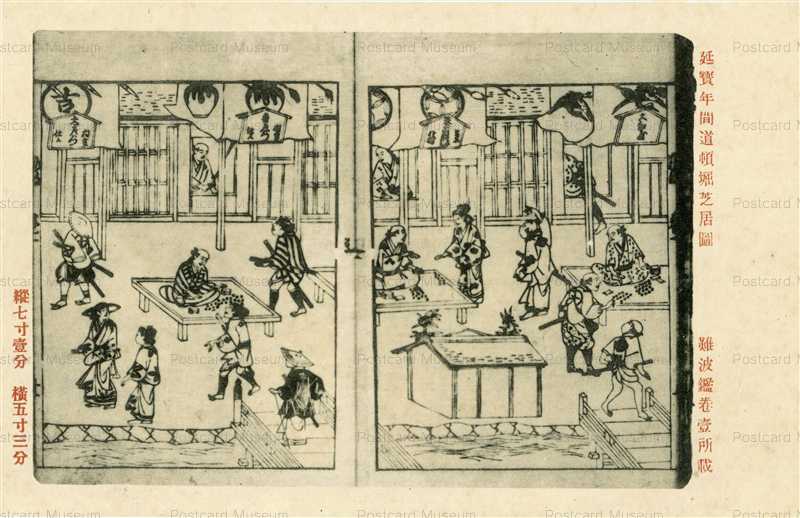 延寶年間道頓堀芝居圖
難波鑑卷壹所載
縱七寸壹分 橫五寸三分
吉
Postcard Museum